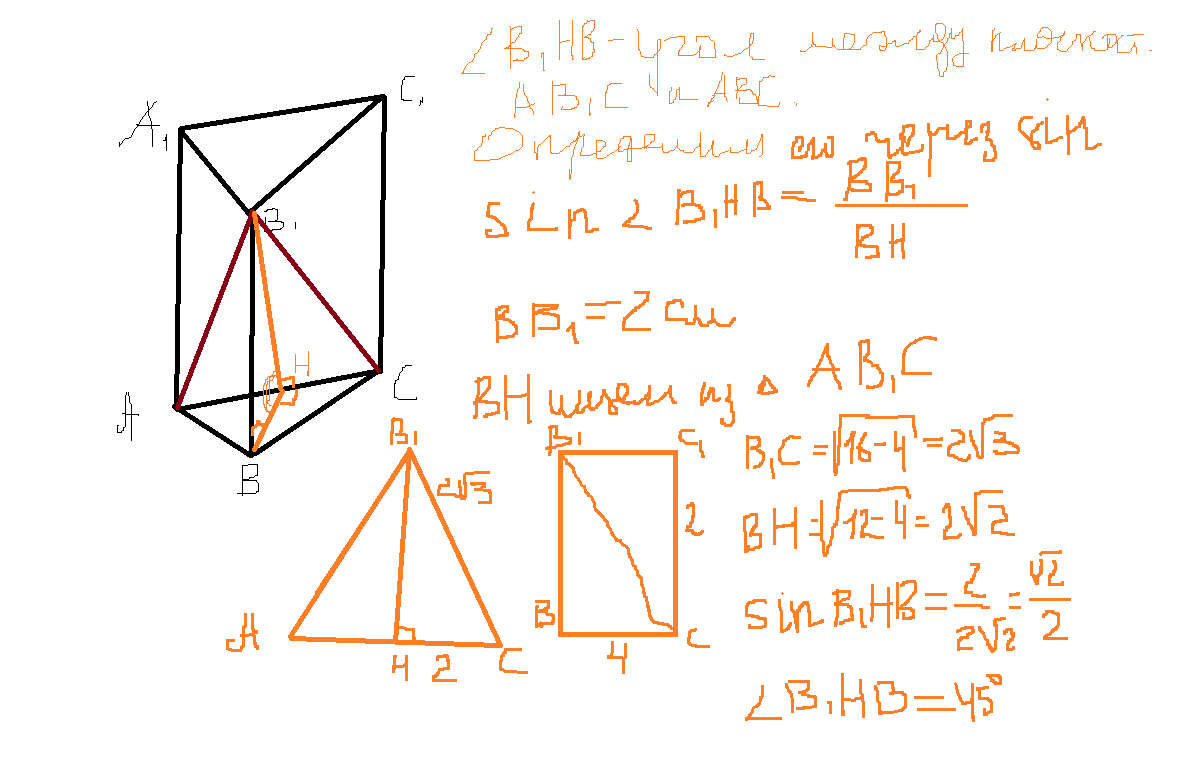 ∠B₁HB - угол между плоскост.
AB₁C и ABC.
Определим его через sin
sin ∠ B₁HB = BB₁ / BH
BB₁ = 2 см
BH ищем из △ AB₁C
B₁C = √16-4 = 2√3
BH = √12-4 = 2√2
sin B₁HB = 2 / 2√2 = √2 / 2
∠B₁HB = 45°
A₁
C₁
B₁
H
A
C
B
B₁
2√3
A
H
2
C
B₁
C₁
2
B
4
C